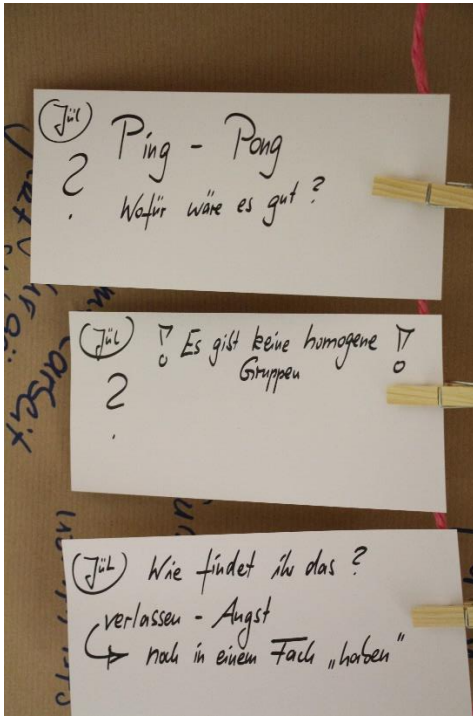 JüL
Ping - Pong
? Wofür wäre es gut ?
JüL ! Es gibt keine homogene !
Gruppen
?
JüL Wie findet ihr das ?
verlassen - Angst
↳ noch in einem Fach „haben“